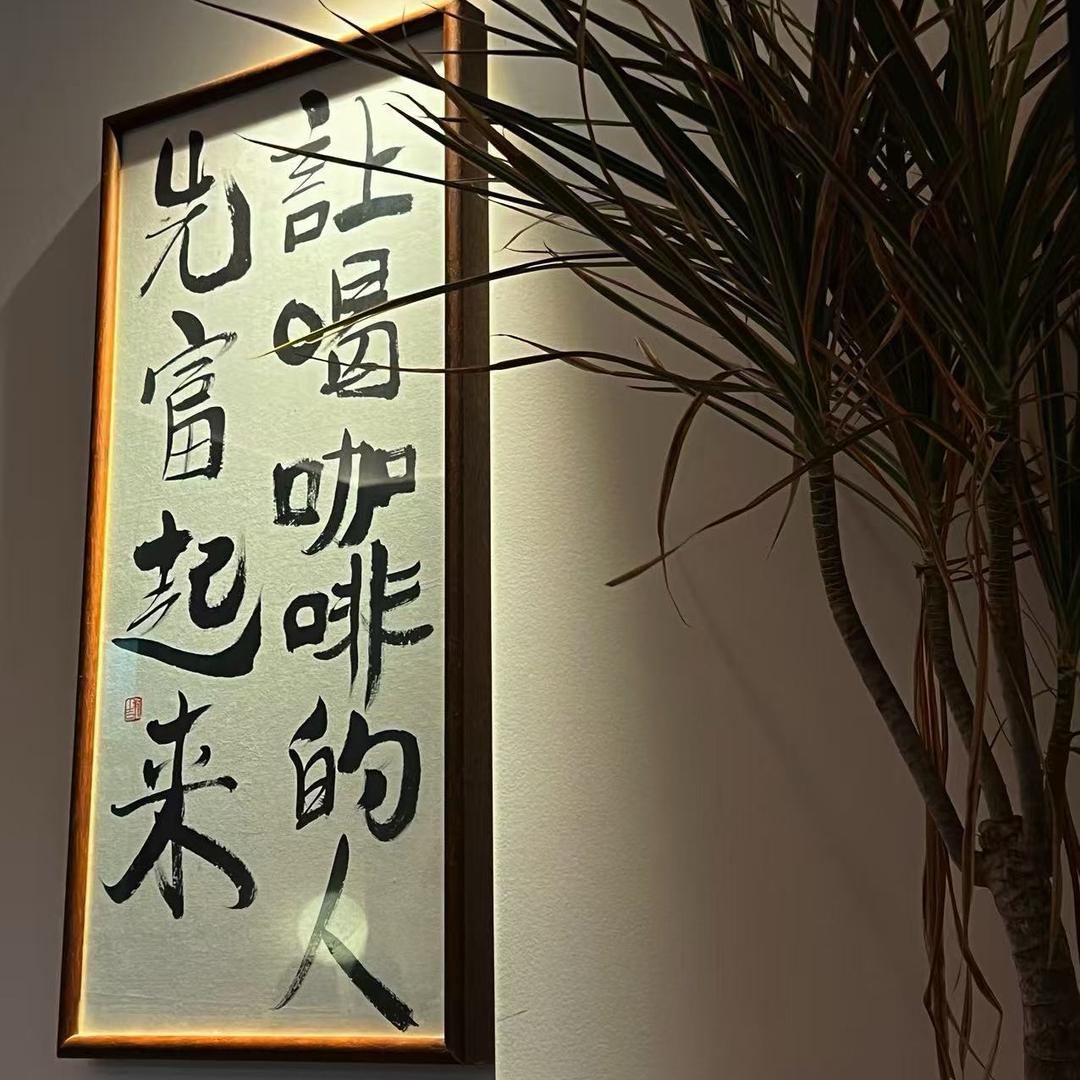 讓喝咖啡的人
先富起来